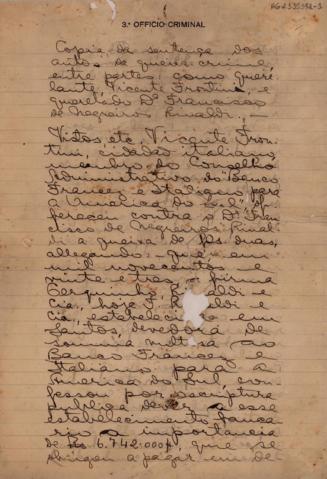 3.º OFFICIO CRIMINAL
Copia da sentença dos
autos de queixa crime,
entre partes, como quere-
lante, Vicente Frontini, e
querelado Dr. Francisco
de Negreiros Rinaldi. —
Vistos, etc. Vicente Fron-
tini, cidadão italiano,
membro do Conselho
Administrativo do "Banco
Francez e Italiano para
a America do Sul", of-
fereceu contra o Dr. Fran-
cisco de Negreiros Rinal-
di a queixa de fls. duas,
allegando: - que em
mil novecentos e
vinte e tres, a firma
Rinaldi e
Cia, hoje
Cia, estabelecida em
Santos, devedora de
somma ao
Banco Francez e
Italiano para a
America do Sul, con-
fessou por escriptura
publica dever a esse
estabelecimento banca-
rio a importancia
de Rs 6.742.000$, que se
obrigou a pagar em de-